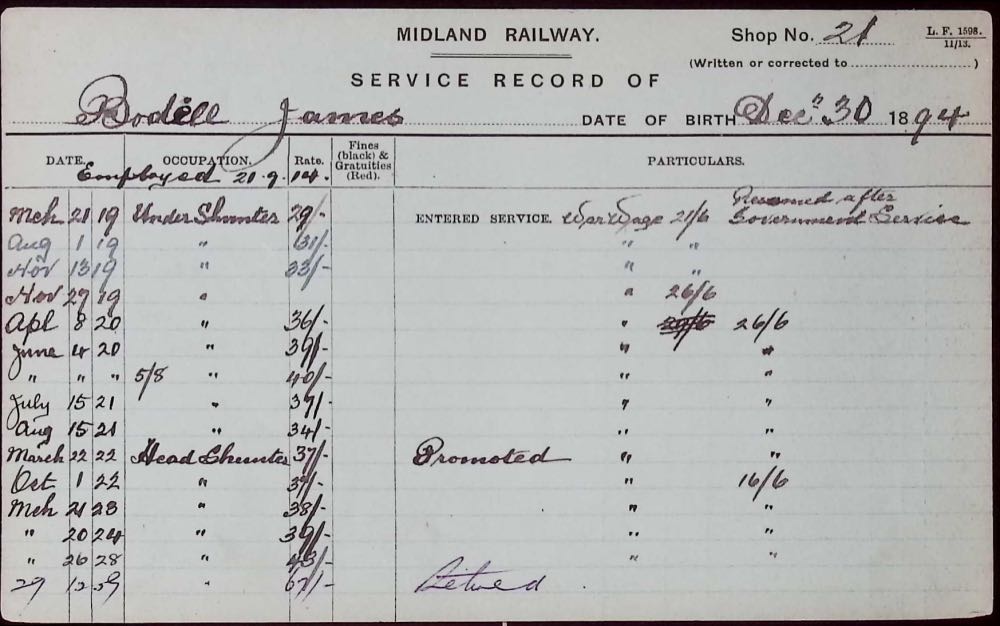 MIDLAND RAILWAY. Shop No. 21 L. F. 1598. 11/13.
(Written or corrected to ............)
SERVICE RECORD OF
Bodill James DATE OF BIRTH Decr 30 1894
DATE. OCCUPATION. Rate. Fines (black) & Gratuities (Red). PARTICULARS.
Employed 21.9.14.
Mch 21 19 Under Shunter 29/- ENTERED SERVICE. War Wage 21/6 Resumed after Government Service
Aug 1 19 " 31/- " "
Nov 13 19 " 33/- " "
Nov 27 19 " " 26/6
Apl 8 20 " 36/- " 26/6
June 4 20 " 39/- " "
" " " 5/8 " 40/- " "
July 15 21 " 37/- " "
Aug 15 21 " 34/- " "
March 22 22 Head Shunter 37/- Promoted " "
Oct 1 22 " 37/- " 16/6
Mch 21 23 " 38/- " "
" 20 24 " 39/- " "
" 26 28 " 43/- " "
29 12 59 " Retired